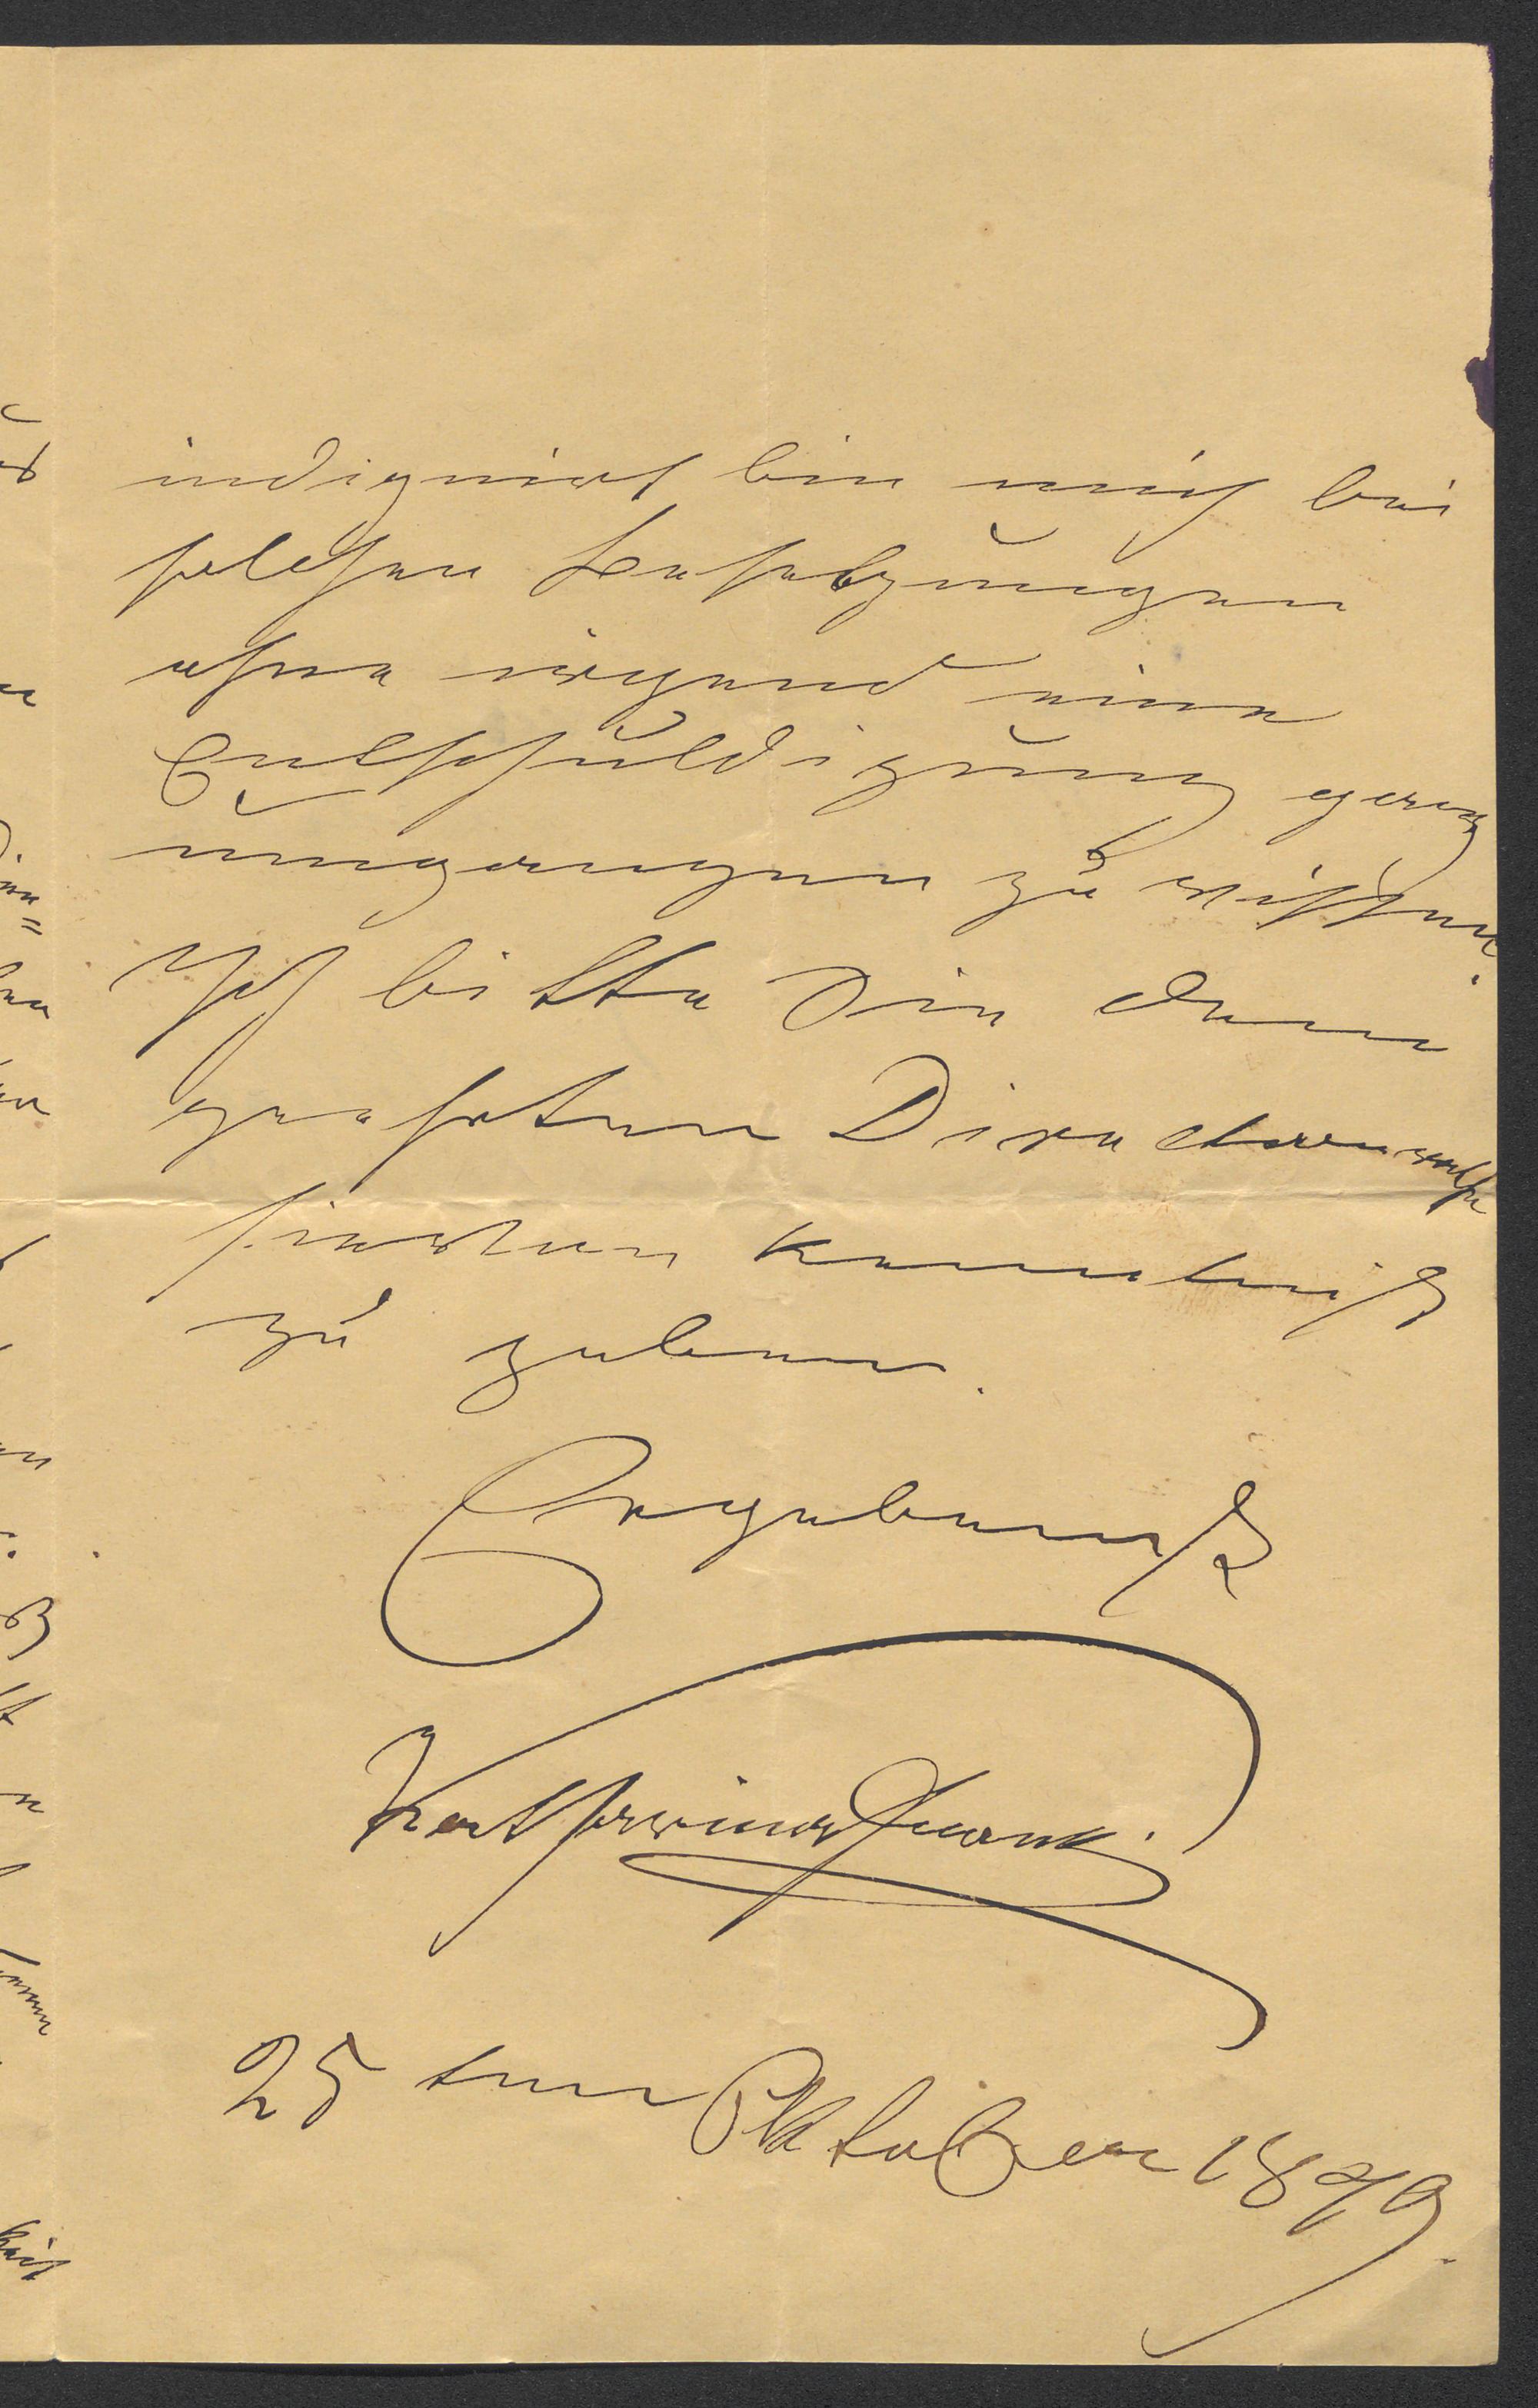 indignirt bin mich bei
solchen Besetzungen
ohne irgend eine
Entschuldigung ganz
umgangen zu wissen.
Ich bitte Sie dem
geehrten Director
hiervon Kenntniß
zu geben.
Ergebenst
Katharina Frank
25ten Oktober 1879.